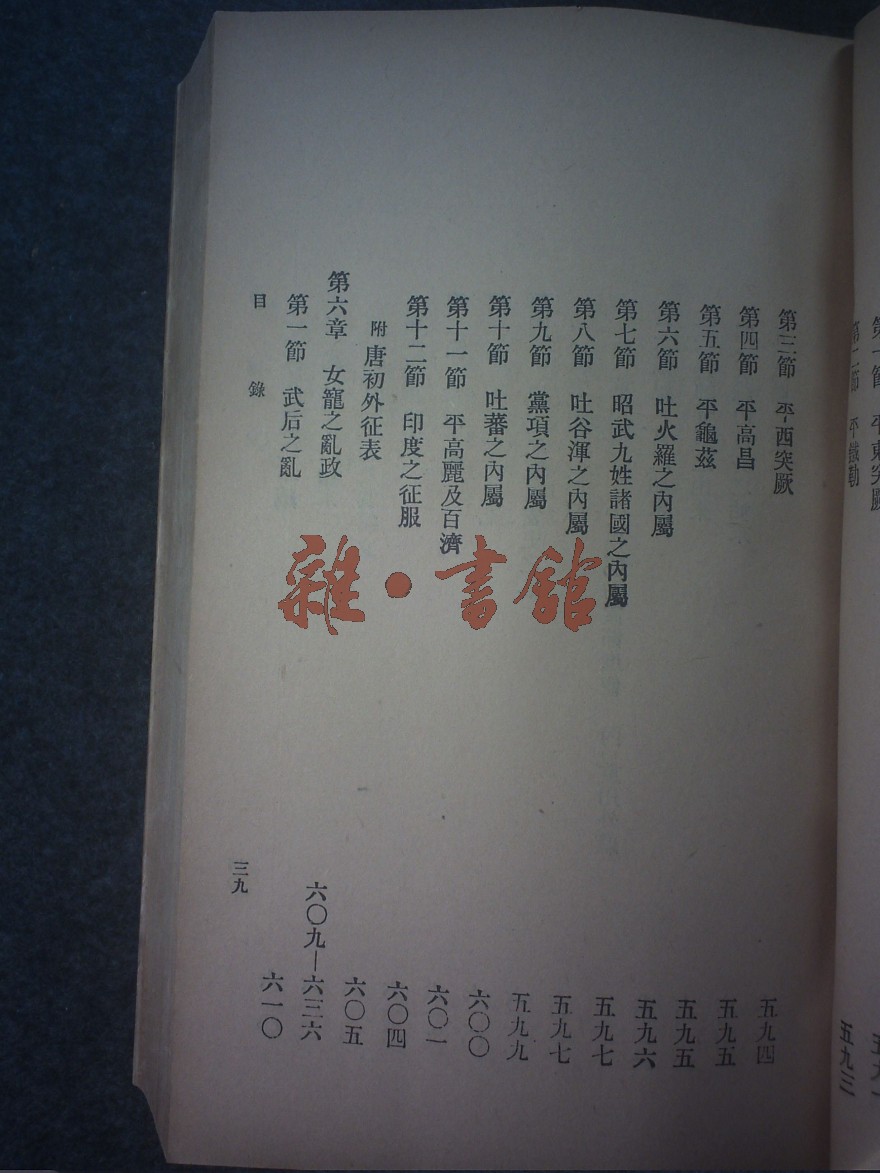 第二節 平鐵勒 五九三
第三節 平西突厥 五九四
第四節 平高昌 五九五
第五節 平龜茲 五九五
第六節 吐火羅之內屬 五九六
第七節 昭武九姓諸國之內屬 五九七
第八節 吐谷渾之內屬 五九七
第九節 黨項之內屬 五九九
第十節 吐蕃之內屬 六〇〇
第十一節 平高麗及百濟 六〇一
第十二節 印度之征服 六〇四
附 唐初外征表 六〇五
第六章 女寵之亂政 六〇九—六三六
第一節 武后之亂 六一〇
目錄 三九
雜·書館